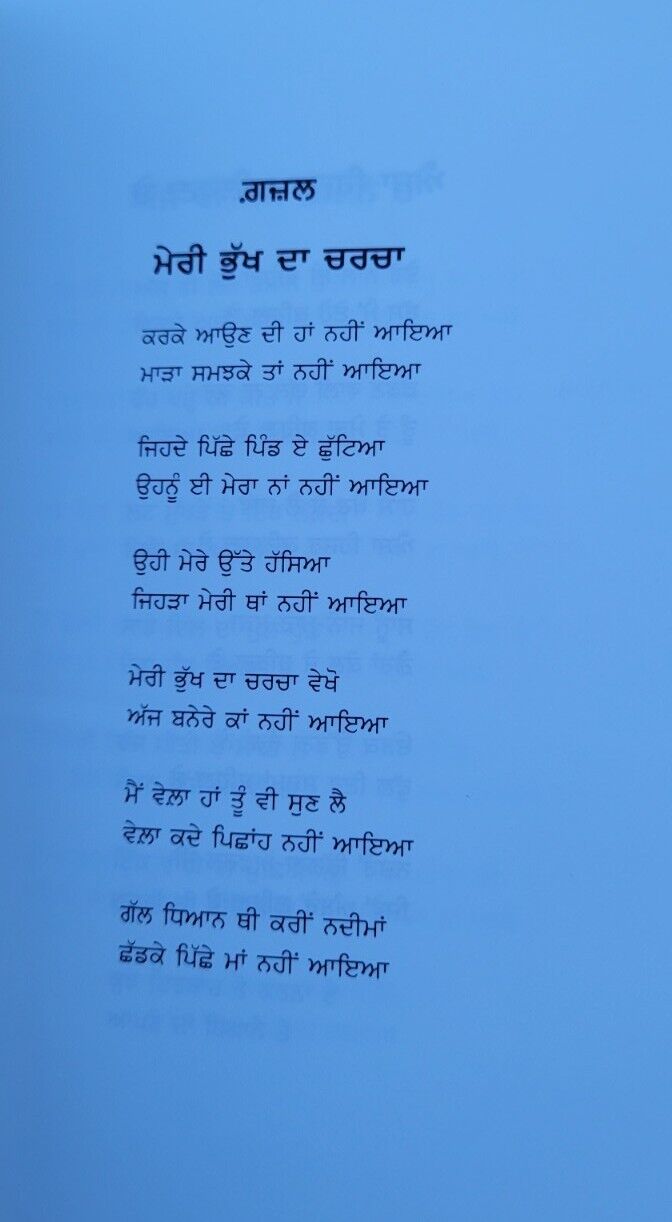 ਗ਼ਜ਼ਲ
ਮੇਰੀ ਭੁੱਖ ਦਾ ਚਰਚਾ
ਕਰਕੇ ਆਉਣ ਦੀ ਹਾਂ ਨਹੀਂ ਆਇਆ
ਮਾੜਾ ਸਮਝਕੇ ਤਾਂ ਨਹੀਂ ਆਇਆ
ਜਿਹਦੇ ਪਿੱਛੇ ਪਿੰਡ ਏ ਛੁੱਟਿਆ
ਉਹਨੂੰ ਈ ਮੇਰਾ ਨਾਂ ਨਹੀਂ ਆਇਆ
ਉਹੀ ਮੇਰੇ ਉੱਤੇ ਹੱਸਿਆ
ਜਿਹੜਾ ਮੇਰੀ ਥਾਂ ਨਹੀਂ ਆਇਆ
ਮੇਰੀ ਭੁੱਖ ਦਾ ਚਰਚਾ ਵੇਖੋ
ਅੱਜ ਬਨੇਰੇ ਕਾਂ ਨਹੀਂ ਆਇਆ
ਮੈਂ ਵੇਲ਼ਾ ਹਾਂ ਤੂੰ ਵੀ ਸੁਣ ਲੈ
ਵੇਲ਼ਾ ਕਦੇ ਪਿਛਾਂਹ ਨਹੀਂ ਆਇਆ
ਗੱਲ ਧਿਆਨ ਥੀ ਕਰੀਂ ਨਦੀਮਾਂ
ਛੱਡਕੇ ਪਿੱਛੇ ਮਾਂ ਨਹੀਂ ਆਇਆ